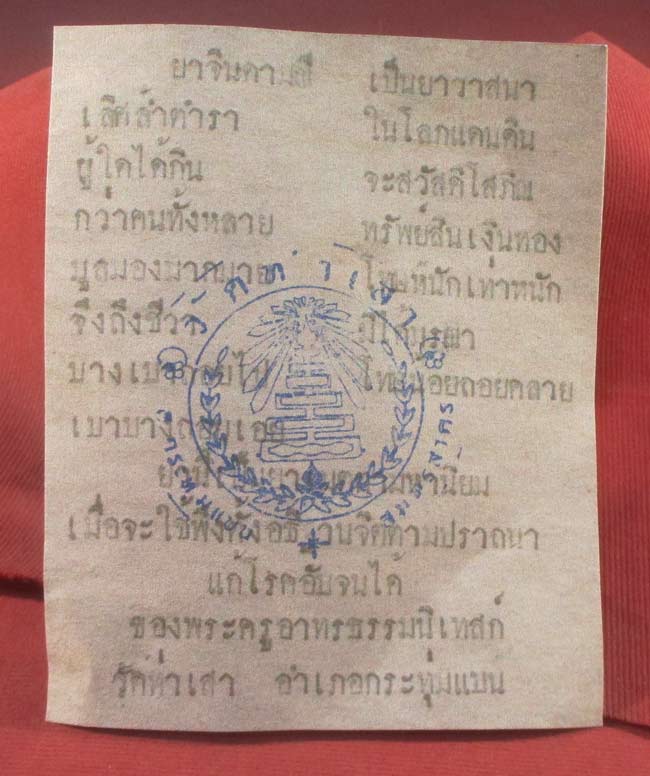 ยาจินดามณี เป็นยาวาสนา
เลิศล้ำตำรา ในโลกแดนดิน
ผู้ใดได้กิน จะสวัสดิโสภิณ
กว่าคนทั้งหลาย ทรัพย์สินเงินทอง
มูลมองมากมาย โทษหนักเท่าหนัก
จึงถึงชีวา
บางเบา โทษน้อยถอยคลาย
เบาบาง
เมื่อจะใช้พึงตั้งอธิ จิตตามปรารถนา
แก้โรคอับจนได้
ของพระครูอาทรธรรมนิเทสก์
วัดท่าเสา อำเภอกระทุ่มแบน
วัดท่าเสา
กระทุ่มแบน
สมุทรสาคร